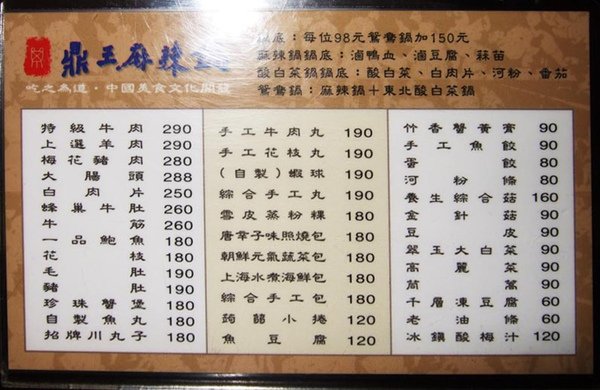 鼎王麻辣鍋
吃之為道·中國美食文化開發
鍋底：每位98元鴛鴦鍋加150元
麻辣鍋鍋底：滷鴨血、滷豆腐、蒜苗
酸白菜鍋鍋底：酸白菜、白肉片、河粉、番茄
鴛鴦鍋：麻辣鍋＋東北酸白菜鍋
特級牛肉 290
上選羊肉 290
梅花豬肉 280
大腸頭 288
白肉片 250
蜂巢牛肚 260
牛筋 260
一品鮑魚 180
花枝 180
毛肚 190
豬肚 190
珍珠蟹煲 180
自製魚丸 180
招牌川丸子 180
手工牛肉丸 190
手工花枝丸 190
(自製)蝦球 190
綜合手工丸 190
雪皮蒸粉粿 180
唐辛子味照燒包 180
朝鮮元氣蔬菜包 180
上海水煮海鮮包 180
綜合手工包 180
蒟蒻小捲 120
魚豆腐 120
竹香蟹黃膏 90
手工魚餃 90
蛋餃 80
河粉條 80
養生綜合菇 160
金針菇 90
豆皮 90
翠玉大白菜 90
高麗菜 90
茼蒿 90
千層凍豆腐 60
老油條 60
冰鎮酸梅汁 120